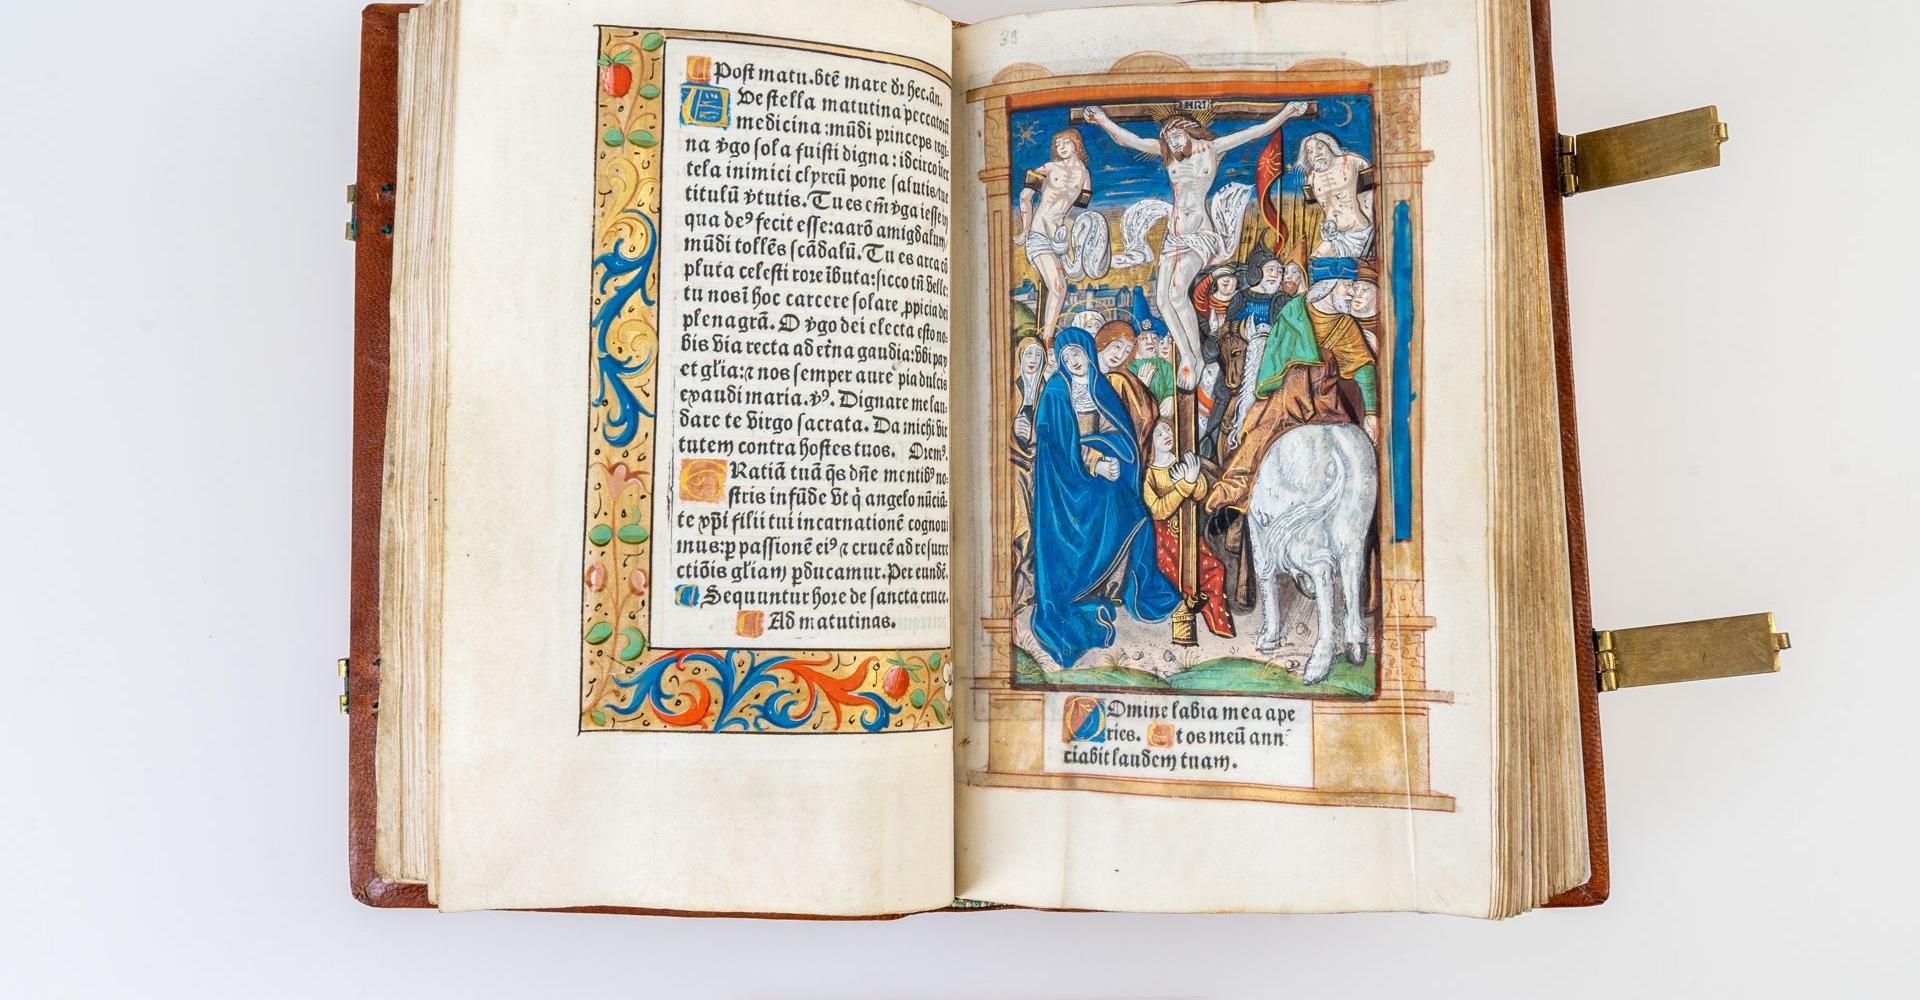 Post matu. btē marẽ dr̄ hec. añ.
Ve stella matutina peccatorū
medicina: mūdi princeps regi-
na v̄go sola fuisti digna: idcirco
tela inimici clypeū pone salutis
titulū v̄tutis. Tu es em̄ v̄ga iesse in
qua deꝰ fecit esse: aarō amigdalum
mūdi tollēs scādalū. Tu es arca cō
pluta celesti rore ībuta: sicco tn̄ velle-
tu nos ī hoc carcere solare ꝓpicia dei
plena grā. O v̄go dei electa esto no-
bis via recta ad et̄na gaudia: vbi pax
et gl̄ia: ⁊ nos semper aure pia dulcis
exaudi maria. v̄ꝰ. Dignare me lau-
dare te virgo sacrata. Da michi vir
tutem contra hostes tuos. Oremꝰ.
GRatiā tuā q̄s dn̄e mentibꝰ no-
stris infūde vt q̇ angelo nūciā-
te xp̄i filii tui incarnationē cognoui
mus: ꝑ passionē eiꝰ ⁊ crucē ad resurre
ctiōis gl̄iam ꝑducamur. Per eundē.
Sequuntur hore de sancta cruce.
Ad matutinas.
39
INRI
DOmine labia mea ape
ries. Et os meū ann
ciabit laudem tuam.